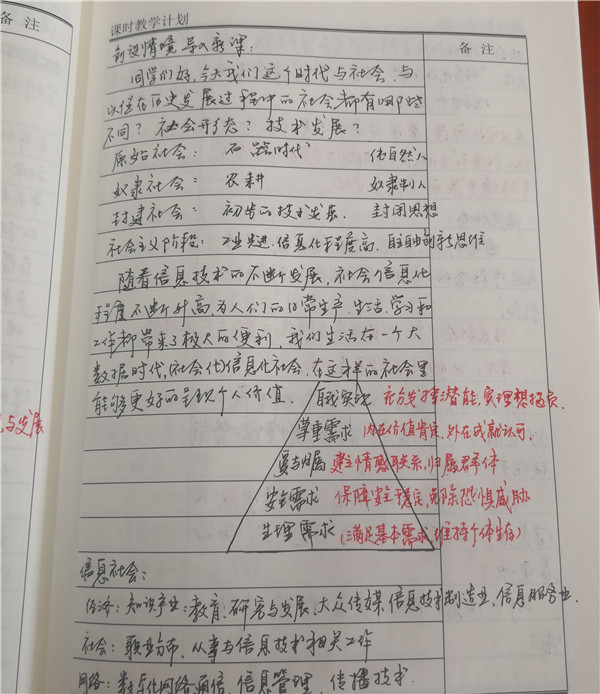 备注
课时教学计划
备注
创设情境 导入新课:
同学们好,今天我们这个时代与社会,与
以往在历史发展过程中的社会都有哪些
不同?社会形态?技术发展?
原始社会: 石器时代 自然人
奴隶社会: 农耕 奴隶制人
封建社会: 初步的技术发展. 封闭思想
社会主义阶段: 工业先进,信息化程度高,自主自由创新思维
随着信息技术的不断发展,社会信息化
程度不断升高,为人们的日常生产.生活.学习和
工作都带来了极大的便利,我们生活在一个大
数据时代,社会化信息化社会,在这样的社会里
能够更好的呈现个人价值.
自我实现 充分发挥潜能,实现理想抱负.
尊重需求 内在价值肯定,外在成就认可.
爱与归属 建立情感联系,归属群体
安全需求 保障安全稳定,免除恐惧威胁
生理需求 (满足基本需求,维持个体生存)
与发展
信息社会:
经济: 知识产业:教育.研究与发展.大众传媒.信息技术制造业.信息服务业.
社会: 职业分布.从事与信息技术相关工作
网络: 数字化网络通信,信息管理,传播技术.